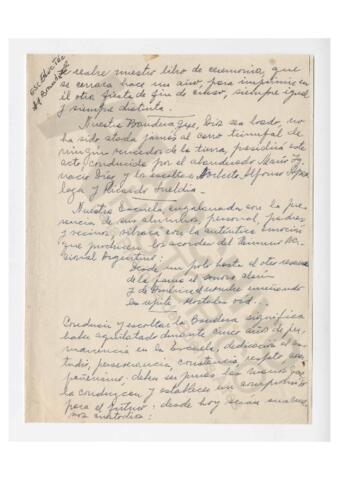 Esc. Educ. Téc.
se reabre nuestro libro de ceremonia, que
se cerrara hace un año, para imprimir en
él otra fiesta de fin de curso, siempre igual
y siempre distinta.
Nuestra Bandera que, Dios sea loado, no
ha sido atada jamás al carro triunfal de
ningún vencedor de la tierra, presidirá este
acto conducida por el abanderado Mario Ig-
nacio Díaz y los escoltas Norberto Alfonso
y Ricardo
Nuestra Escuela engalanada con la pre-
sencia de sus alumnos, personal, padres
y vecinos, vibrará con la auténtica emoción
que producen los acordes del Himno Na-
cional Argentino:
Desde un polo hasta el otro resuena
de la fama el sonoro clarín
y de América el nombre enseñando
les repite, Mortales oíd...
Conducir y escoltar la Bandera significa
haber aquilatado durante cinco años de per-
manencia en la Escuela, dedicación al es-
tudio, perseverancia, constancia, respeto,
compañerismo; deben ser puras las manos que
la conduzcan y establecer un compromiso
para el futuro: desde hoy serán
sus custodios: